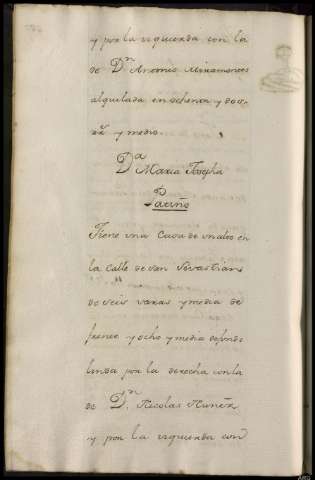 y por la izquierda con la
de Dn Antonio Miramontes
alquilada en ochenta y dos
rs y medio.
Da Maria Josepha
Patiño
Tiene una Casa de un alto en
la Calle de san Sevastian
de seis varas y media de
frente y ocho y media defondo
linda por la derecha con la
de Dn. Nicolas Nuñez
y por la izquierda con